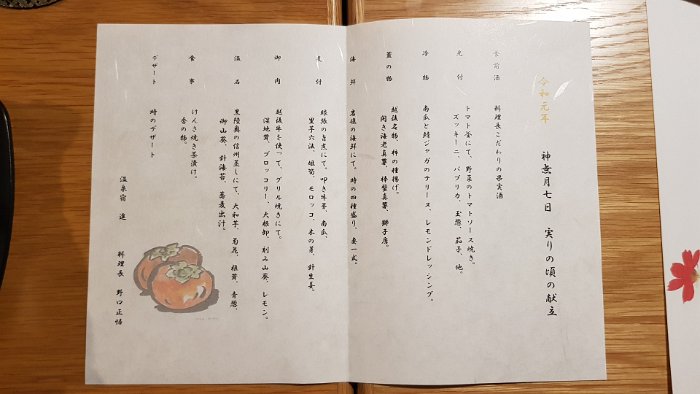 令和元年
神無月七日 実りの頃の献立
食前酒 料理長こだわりの果実酒
先付 トマト釜にて、野菜のトマトソース焼き。
ズッキーニ、パプリカ、玉葱、茄子、他。
冷物 南瓜と鮭ジャガのテリーヌ、レモンドレッシング。
蓋の物 越後名物、柿の種揚げ。
開き海老真薯、棒蟹真薯、獅子唐。
海鮮 岩後の海鮮にて、時の四種盛り、妻一式。
先付
里芋六法、姫筍、モロッコ、木の葉、針生姜。
御肉 越後牛を使って、グリル焼きにて。
深地茸、ブロッコリー、大根卸、刻み山葵、レモン。
温名 里陸奥の信州蒸しにて、大和芋、菊花、椎茸、青葱。
卸山葵、針海苔、蕎麦出汁。
食事 けんさ焼き茶漬け。
香の物。
デザート 時のデザート
温泉宿
料理長 野口正幡